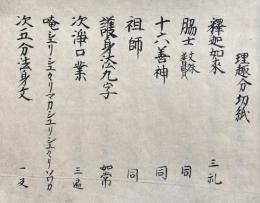 理趣分切紙
釋迦如来 三礼
脇士 文殊 普賢 同
十六善神 同
祖師 同
護身法九字 如常
次淨口業 三遍
唵シユリシユリマカシユリシユシユリソワカ
次五分法身文 一